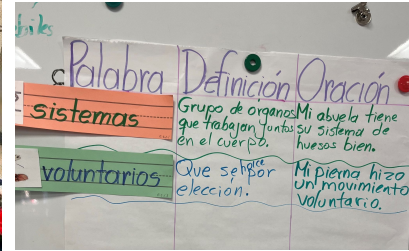 Palabra Definición Oración
sistemas
Grupo de organos
que trabajan juntos
en el cuerpo.
Mi abuela tiene
su sistema de
huesos bien.
voluntarios
Que se hace por
elección.
Mi pierna hizo
un movimiento
voluntario.